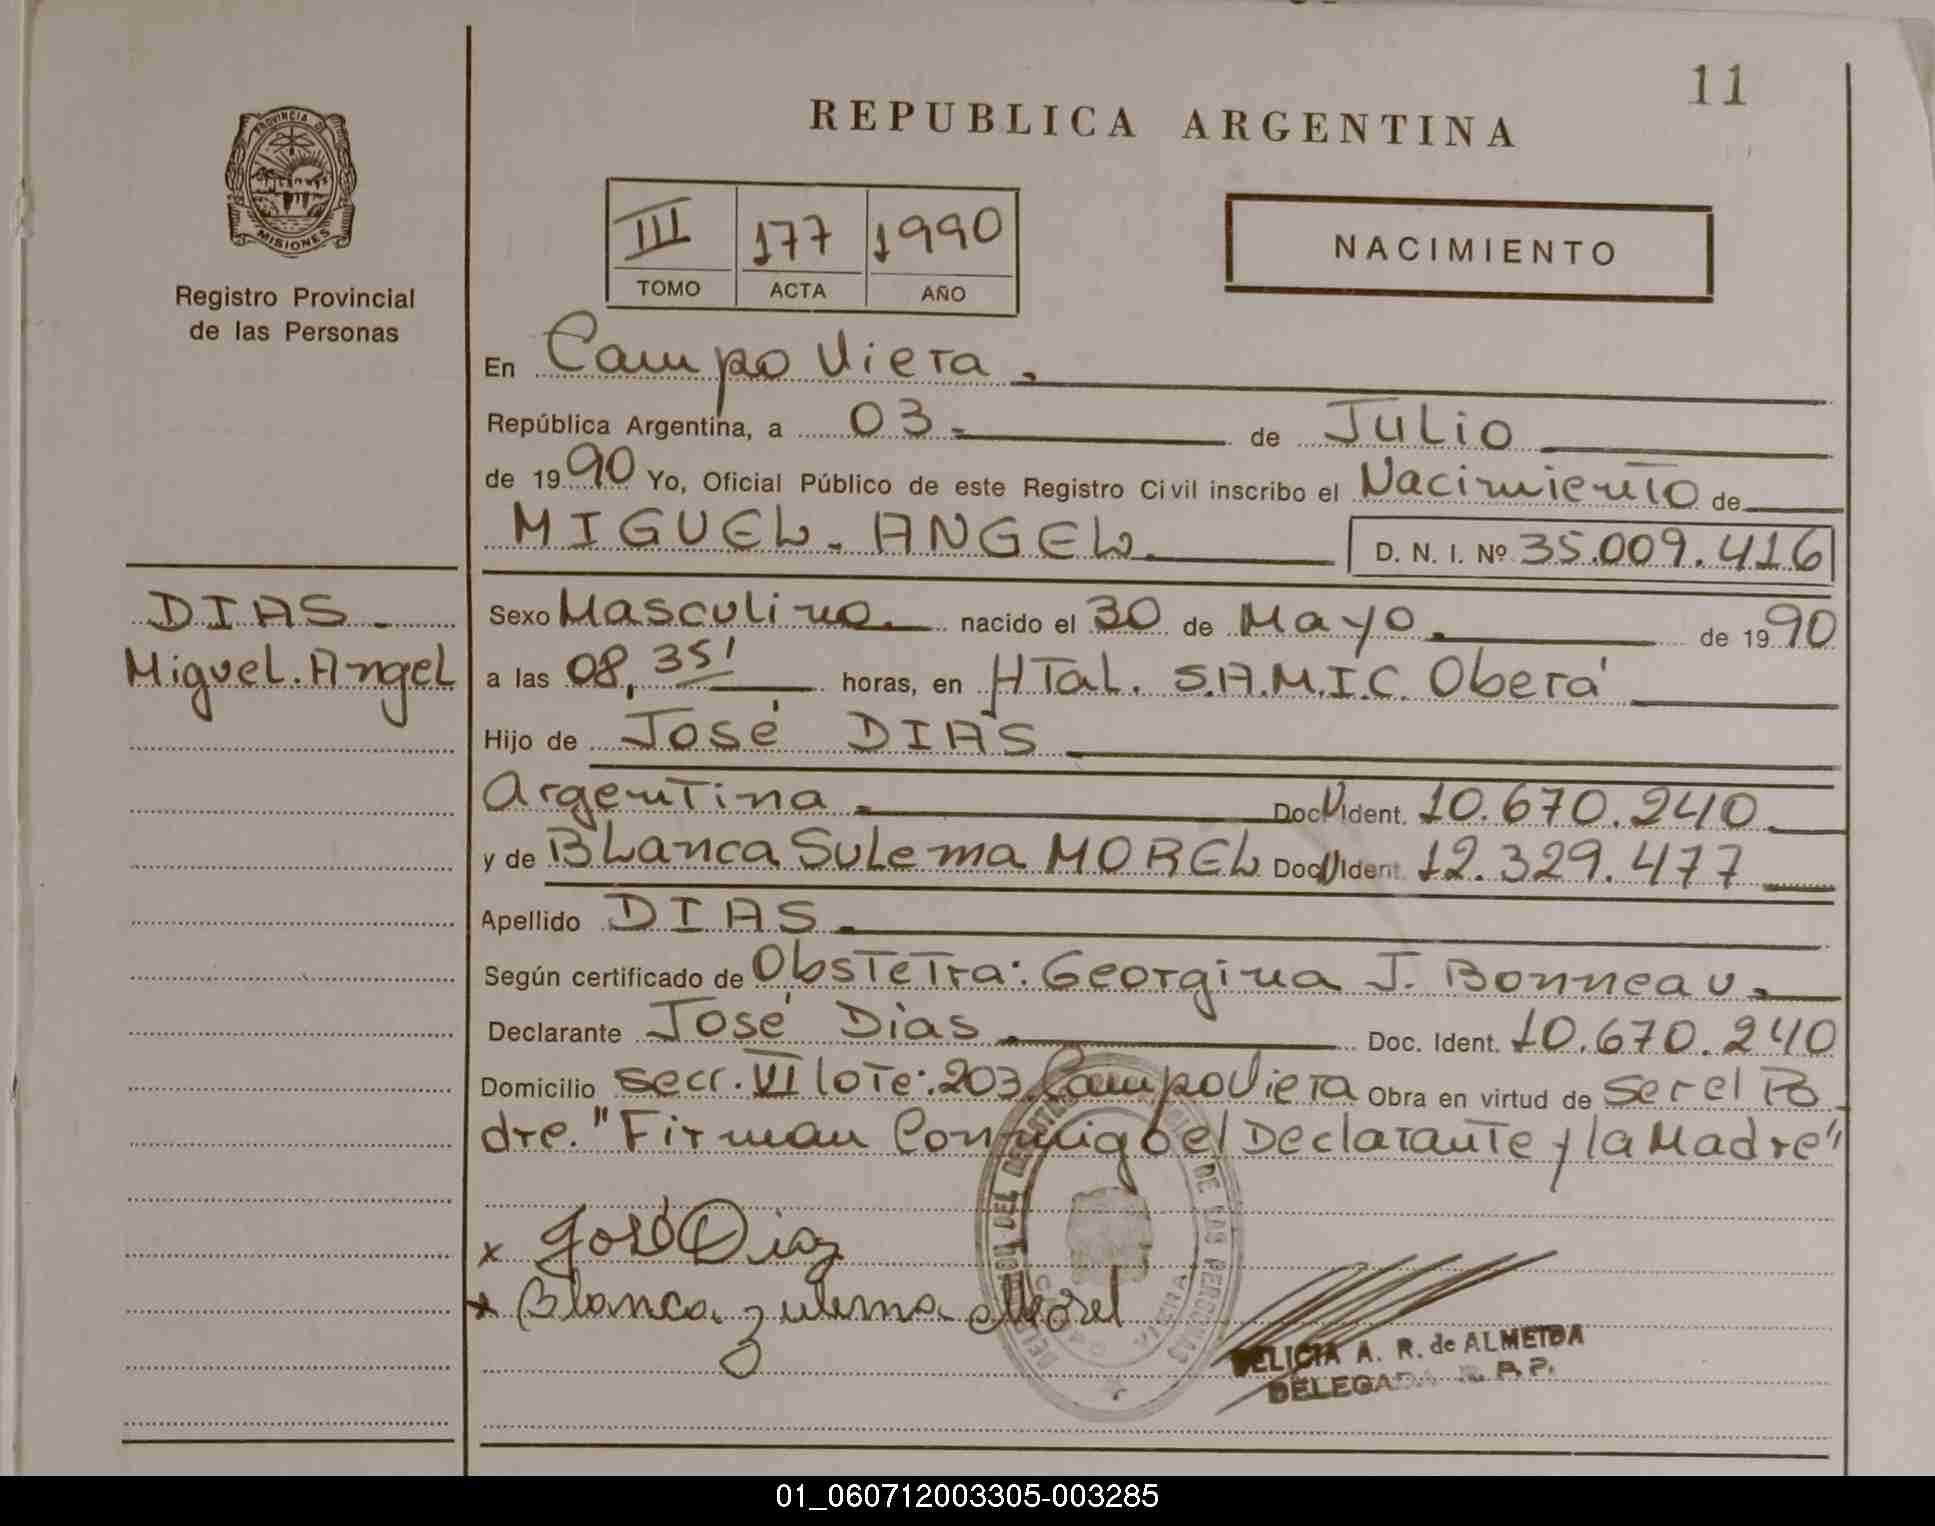 11
REPUBLICA ARGENTINA
PROVINCIA DE
MISIONES
Registro Provincial
de las Personas
III 177 1990
TOMO ACTA AÑO
NACIMIENTO
En Campo Viera.
República Argentina, a 03 de Julio
de 1990 Yo, Oficial Público de este Registro Civil inscribo el Nacimiento de
MIGUEL. ANGEL. D. N. I. Nº 35.009.416
DIAS.
Miguel. Angel
Sexo Masculino. nacido el 30 de Mayo. de 1990
a las 08,35' horas, en HTal. S.A.M.I.C. Oberá
Hijo de José DIAS
Argentina. Doc U Ident. 10.670.240
y de Blanca Sulema MOREL Doc U Ident. 12.329.477
Apellido DIAS.
Según certificado de Obstetra: Georgina J. Bonneau.
Declarante José Dias. Doc. Ident. 10.670.240
Domicilio secc. VI lote: 203 Campo Viera Obra en virtud de ser el Pa
dre. "Firman Conmigo el Declarante y la Madre"
x José Diaz
x Blanca zulema Morel
DE LAS PERSONAS
DELICIA A. R. de ALMEIDA
DELEGADA R. P. P.
01_060712003305-003285